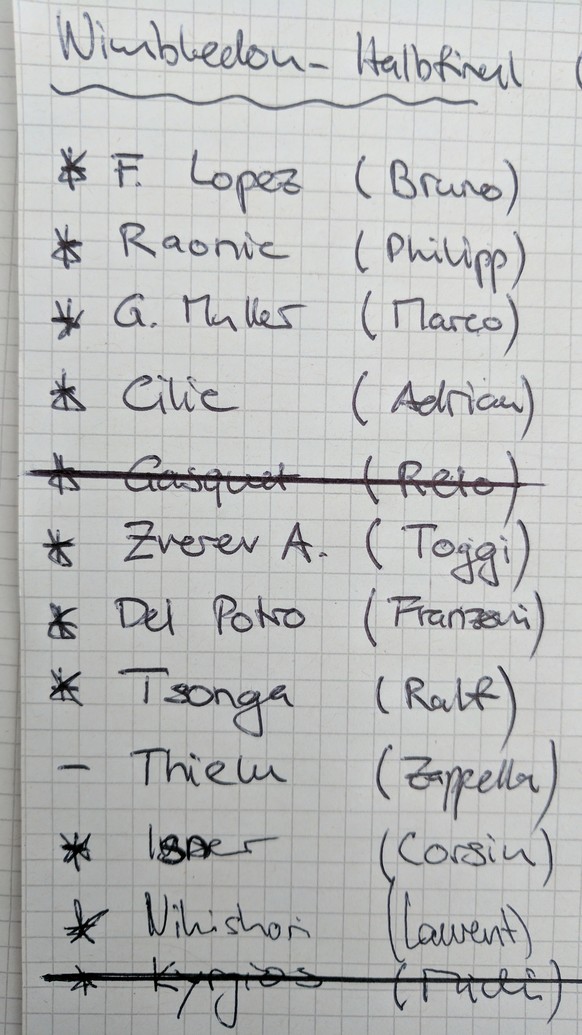 Wimbledon - Halbfinal (
* F. Lopez (Bruno)
* Raonic (Philipp)
* G. Muller (Marco)
* Cilic (Adrian)
* Gasquet (Reto)
* Zverev A. (Toggi)
* Del Potro (Franzoni)
* Tsonga (Ralf)
- Thiem (Zappella)
* Isner (Corsin)
* Nihishori (Laurent)
* Kyrgios